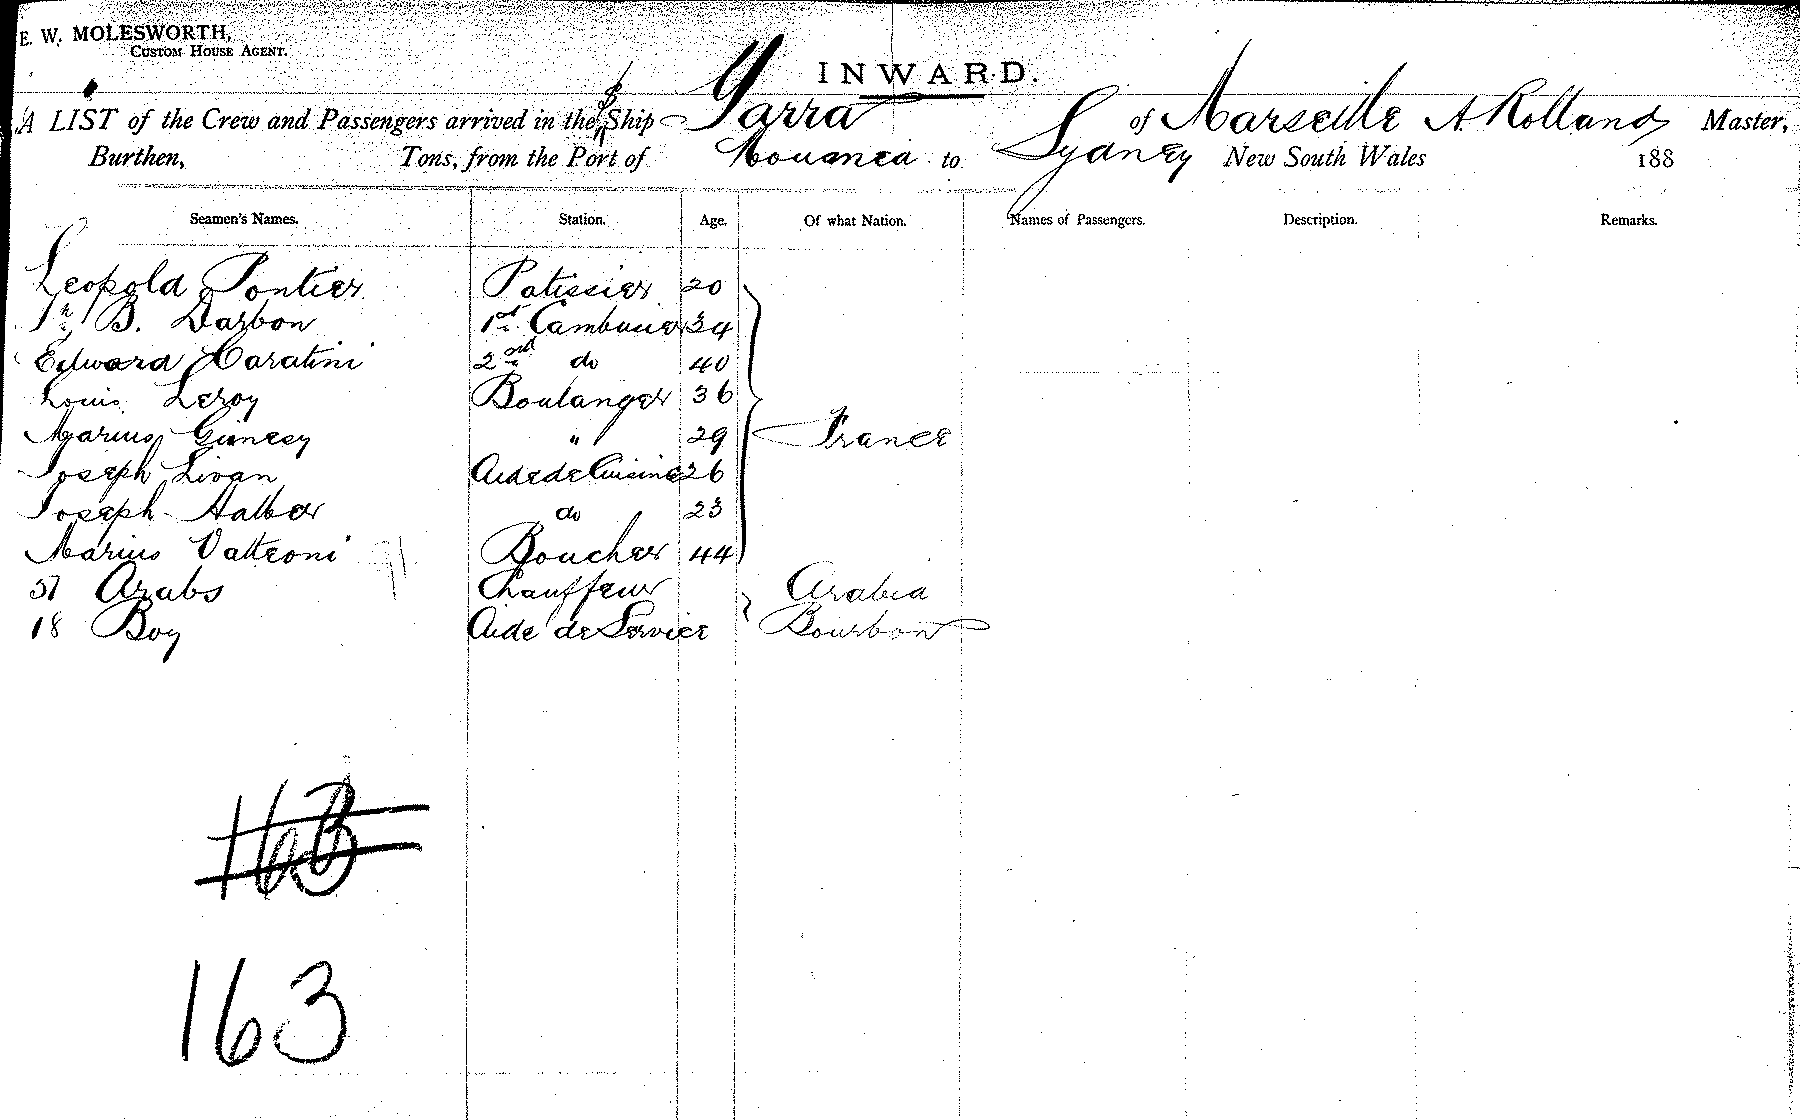 E. W. MOLESWORTH,
CUSTOM HOUSE AGENT.
INWARD.
A LIST of the Crew and Passengers arrived in the Ship Yarra of Marseille A. Rolland Master,
Burthen, Tons, from the Port of Noumea to Sydney New South Wales 188
Seamen's Names. Station. Age. Of what Nation. Names of Passengers. Description. Remarks.
Leopold Pontier Patissier 20
Jn B. Darbon 1st Cambusier 34
Edward Caratini 2nd do 40
Louis Leroy Boulanger 36
Marius " 29 France
Joseph Livan Aide de Cuisine 26
Joseph do 23
Marius Vatteoni Boucher 44
57 Arabs Chauffeur Arabia
18 Boy Aide de Service Bourbon
163
163